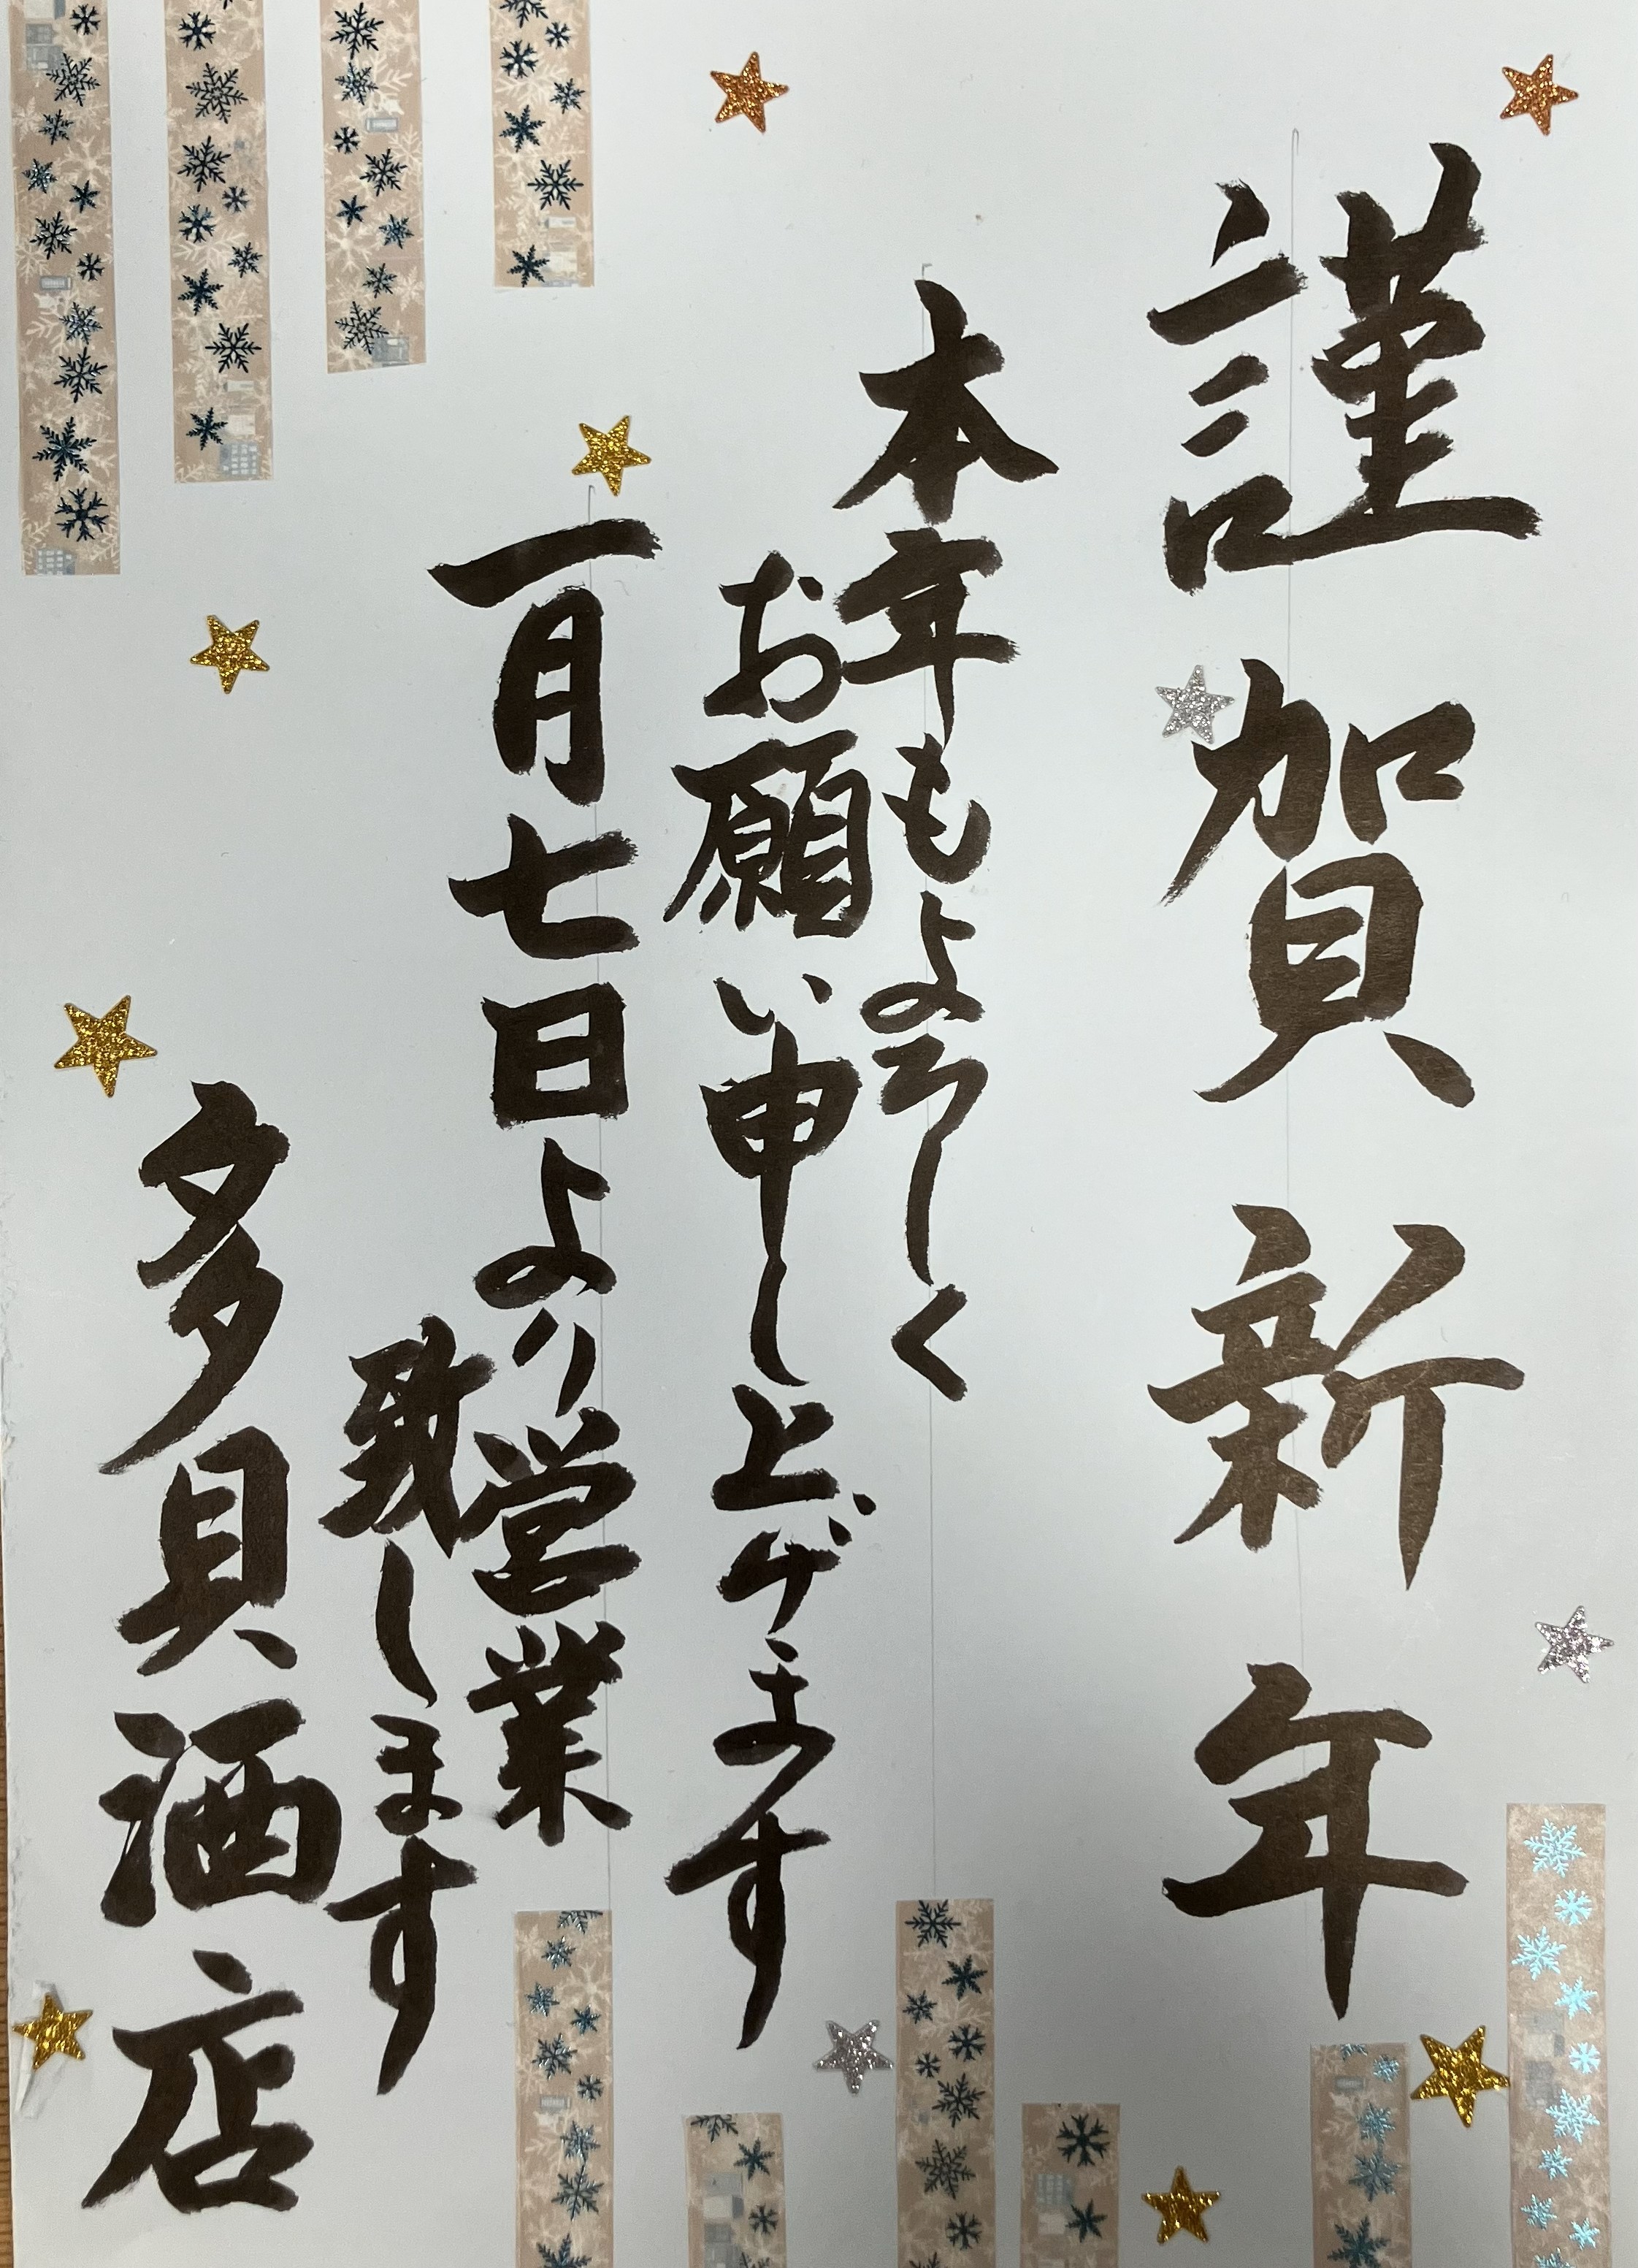 謹賀新年
本年もよろしく
お願い申し上げます
一月七日より営業
致します
多貝酒店